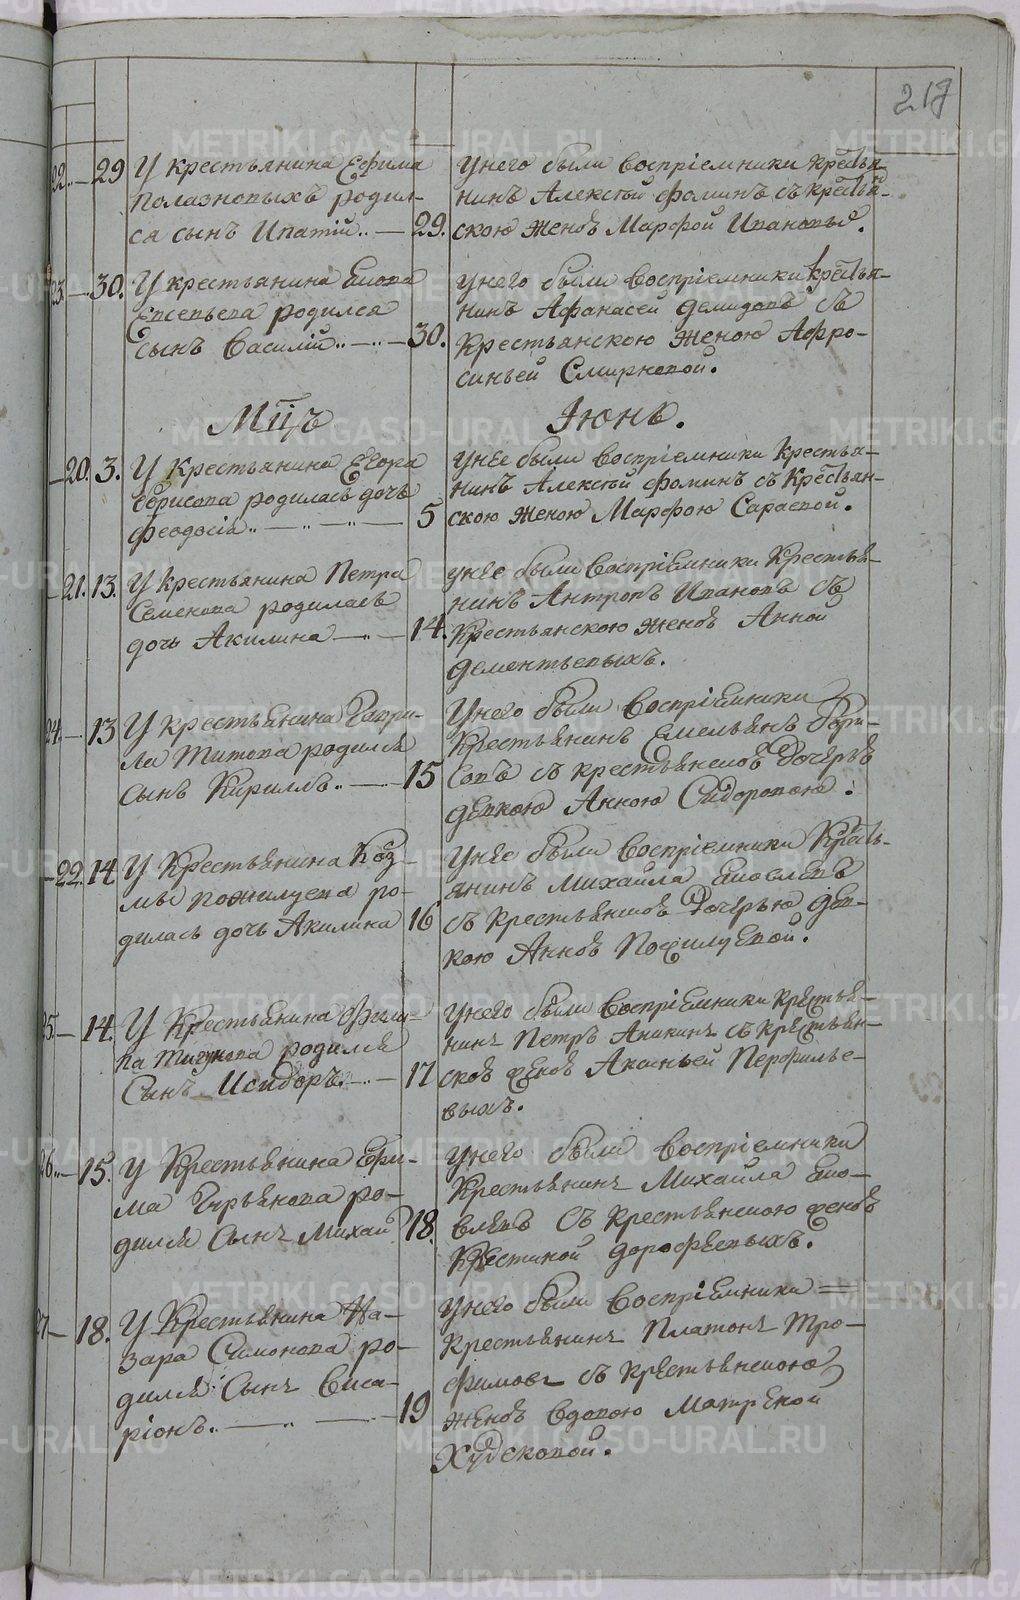 217
22. 29 У крестьянина Ефима
Полазновыхъ родил-
ся сынъ Ипатій 29.
У него были воспріемники крестья-
нинъ Алексѣй Фоминъ съ крестьян-
скою женою Марфой Ивановой.
23. 30. У крестьянина
Евсевьева родился
сынъ Василій 30.
У него были воспріемники крестья-
нинъ Афанасей Демидовъ съ
крестьянскою женою Афро-
синьей Смирновой.
Мцъ Іюнь.
20. 3. У крестьянина Егора
Борисова родилась дочь
Феодосія 5
У нее были воспріемники крестья-
нинъ Алексѣй Фоминъ съ крестьян-
скою женою Марфою Сараевой.
21. 13. У крестьянина Петра
Семенова родилась
дочь Акилина 14.
У нее были воспріемники крестья-
нинъ Антропъ Ивановъ съ
крестьянскою женою Анной
Дементьевыхъ.
24. 13 У крестьянина Гаври-
ла Титова родился
сынъ Кириллъ 15
У него были воспріемники
крестьянинъ Емельянъ Бори-
совъ съ крестьянской дочерью
девкою Анною Сидоровою.
22. 14 У крестьянина Коз-
мы Пошилуева ро-
дилась дочь Акилина 16
У нее были воспріемники кресть-
янинъ Михайла
съ крестьянской дочерью дев-
кою Анной Пошилуевой.
25. 14. У крестьянина Фили-
па родился
сынъ Исидоръ 17
У него были воспріемники крестья-
нинъ Петръ Аникинъ съ крестьян-
ской женой Аксиньей Перфилье-
выхъ.
26. 15. У крестьянина Ефи-
ма Гурьянова ро-
дился сынъ Михай 18.
У него были воспріемники
крестьянинъ Михайла
съ крестьянскою женой
Крестиной Дорофеевыхъ.
27 18. У крестьянина На-
зара Симонова ро-
дился сынъ Виса-
ріонъ. 19
У него были воспріемники
крестьянинъ Платонъ Тро-
фимовъ съ крестьянскою
женой вдовою Матреной
Худековой.
METRIKI.GASO-URAL.RU